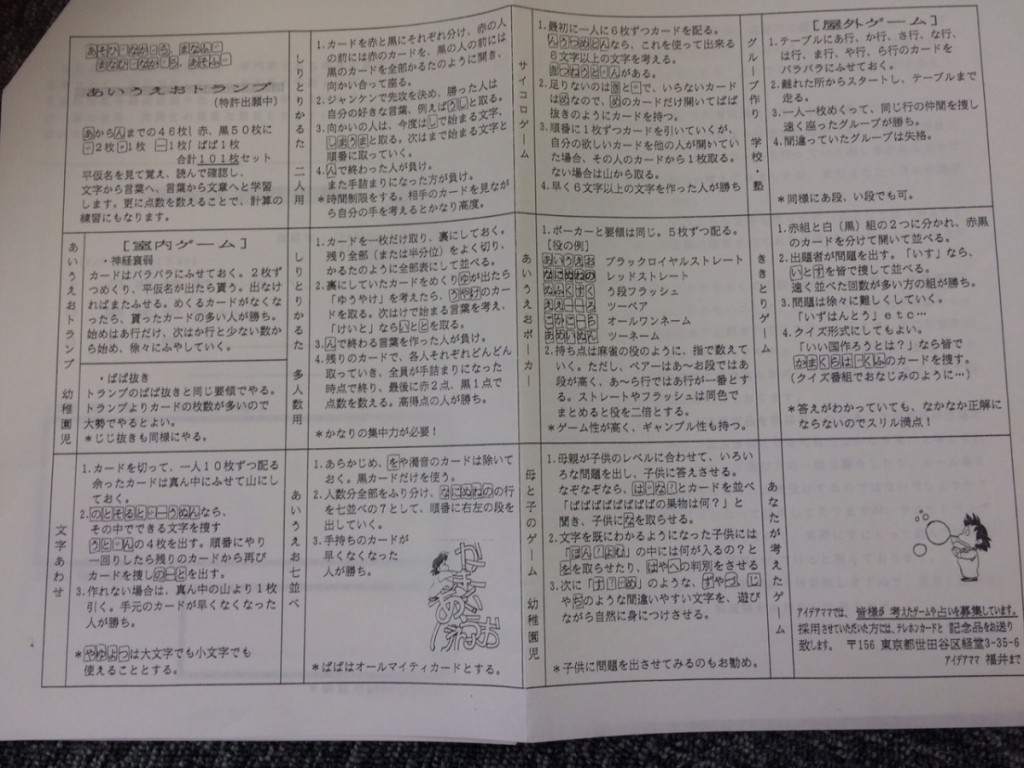 あそび゛ながら、まなぶ゛
まなび゛ながら、あそぶ゛
あいうえおトランプ
(特許出願中)
あからんまでの46枚 赤、黒50枚に
゛2枚゜1枚 ー1枚 ばば1枚
合計101枚セット
平仮名を見て覚え、読んで確認し、
文字から言葉へ、言葉から文章へと学習
します。更に点数を数えることで、計算の
練習にもなります。
しりとりかるた 二人用
1.カードを赤と黒にそれぞれ分け、赤の人
の前には赤のカードを、黒の人の前には
黒のカードを全部かるたのように開き、
向かい合って座る。
2.ジャンケンで先攻を決め、勝った人は
自分の好きな言葉、例えばうしと取る。
3.向かいの人は、今度はしで始まる文字、
しまうまと取る。次はまで始まる文字と
順番に取っていく。
4.んで終わった人が負け。
また手詰まりになった方が負け。
*時間制限をする。相手のカードを見なが
ら自分の手を考えるとかなり高度。
サイコロゲーム
1.最初に一人に6枚ずつカードを配る。
んうつめとんなら、これを使って出来る
6文字以上の文字を考える。
きつねうど゛んがある。
2.足りないのはきと゛で、いらないカード
はぬなので、ぬのカードだけ開いてばば
抜きのようにカードを持つ。
3.順番に1枚ずつカードを引いていくが、
自分の欲しいカードを他の人が開いてい
た場合、その人のカードから1枚取る。
ない場合は山から取る。
4.早く6文字以上の文字を作った人が勝ち
グループ作り 学校・塾
[屋外ゲーム]
1.テーブルにあ行、か行、さ行、な行、
は行、ま行、や行、ら行のカードを
バラバラにふせておく。
2.離れた所からスタートし、テーブルまで
走る。
3.一人一枚めくって、同じ行の仲間を捜し
速く座ったグループが勝ち。
4.間違っていたグループは失格。
*同様にあ段、い段でも可。
あいうえおトランプ 幼稚園児
[室内ゲーム]
・神経衰弱
カードはバラバラにふせておく。2枚ず
つめくり、平仮名が出たら貰う。出なけ
ればまたふせる。めくるカードがなくな
ったら、貰ったカードの多い人が勝ち。
始めはあ行だけ、次はか行と少ない数か
ら始め、徐々にふやしていく。
・ばば抜き
トランプのばば抜きと同じ要領でやる。
トランプよりカードの枚数が多いので
大勢でやるとよい。
*じじ抜きも同様にやる。
しりとりかるた 多人数用
1.カードを一枚だけ取り、裏にしておく。
残り全部(または半分位)をよく切り、
かるたのように全部表にして並べる。
2.裏にしていたカードをめくりゆが出たら
「ゆうやけ」を考えたら、うやけのカー
ドを取る。次はけで始まる言葉を考え、
「けいと」ならいととを取る。
3.んで終わる言葉を作った人が負け。
4.残りのカードで、各人それぞれどんどん
取っていき、全員が手詰まりになった
時点で終り、最後に赤2点、黒1点で
点数を数える。高得点の人が勝ち。
*かなりの集中力が必要!
あいうえおポーカー
1.ポーカーと要領は同じ。5枚ずつ配る。
[役の例]
あいうえお ブラックロイヤルストレート
なにぬねの レッドストレート
ぬふくすく う段フラッシュ
ええーーろ ツーペア
こかこーら オールワンネーム
あめいぬん ツーネーム
2.持ち点は麻雀の役のように、指で数えて
いく。ただし、ペアーはあ~お段ではあ
段が高く、あ~ら行ではあ行が一番とす
る。ストレートやフラッシュは同色で
まとめると役を二倍とする。
*ゲーム性が高く、ギャンブル性も持つ。
ききとりゲーム
1.赤組と白(黒)組の2つに分かれ、赤黒
のカードを分けて開いて並べる。
2.出題者が問題を出す。「いす」なら、
いとすを皆で捜して並べる。
速く並べた回数が多い方の組が勝ち。
3.問題は徐々に難しくしていく。
「いずはんとう」etc…
4.クイズ形式にしてもよい。
「いい国作ろうとは?」なら皆で
かまくらは゛くふのカードを捜す。
(クイズ番組でおなじみのように…)
*答えがわかっていても、なかなか正解に
ならないのでスリル満点!
文字あわせ
1.カードを切って、一人10枚ずつ配る
余ったカードは真ん中にふせて山にし
ておく。
2.のとそるといーうぬんなら、
その中でできる文字を捜す
うど゛んの4枚を出す。順番にやり
一回りしたら残りのカードから再び
カードを捜しのーとを出す。
3.作れない場合は、真ん中の山より1枚
引く。手元のカードが早くなくなった
人が勝ち。
*やゆよつは大文字でも小文字でも
使えることとする。
あいうえお七並べ
1.あらかじめ、をや濁音のカードは除いて
おく。黒カードだけを使う。
2.人数分全部をふり分け、なにぬねのの行
を七並べの7として、順番に右左の段を
出していく。
3.手持ちのカードが
早くなくなった
人が勝ち。
*ばばはオールマイティカードとする。
母と子のゲーム 幼稚園児
1.母親が子供のレベルに合わせて、いろい
ろな問題を出し、子供に答えさせる。
なぞなぞなら、は゛な?とカードを並べ
「ばばばばばばばばの果物は何?」と
聞き、子供になを取らせる。
2.文字を既にわかるようになった子供には
「ほん?よむ」の中には何が入るの?と
をを取らせたり、はやへの判別をさせる
3.次に「す?゛め」のような、ずやづ、じ
やぢのような間違いやすい文字を、遊び
ながら自然に身につけさせる。
*子供に問題を出させてみるのもお勧め。
あなたが考えたゲーム
アイデアママでは、皆様が考えたゲームや占いを募集しています。
採用させていただいた方には、テレホンカードと記念品をお送り
致します。 〒156 東京都世田谷区経堂3-35-6
アイデアママ 福井まで